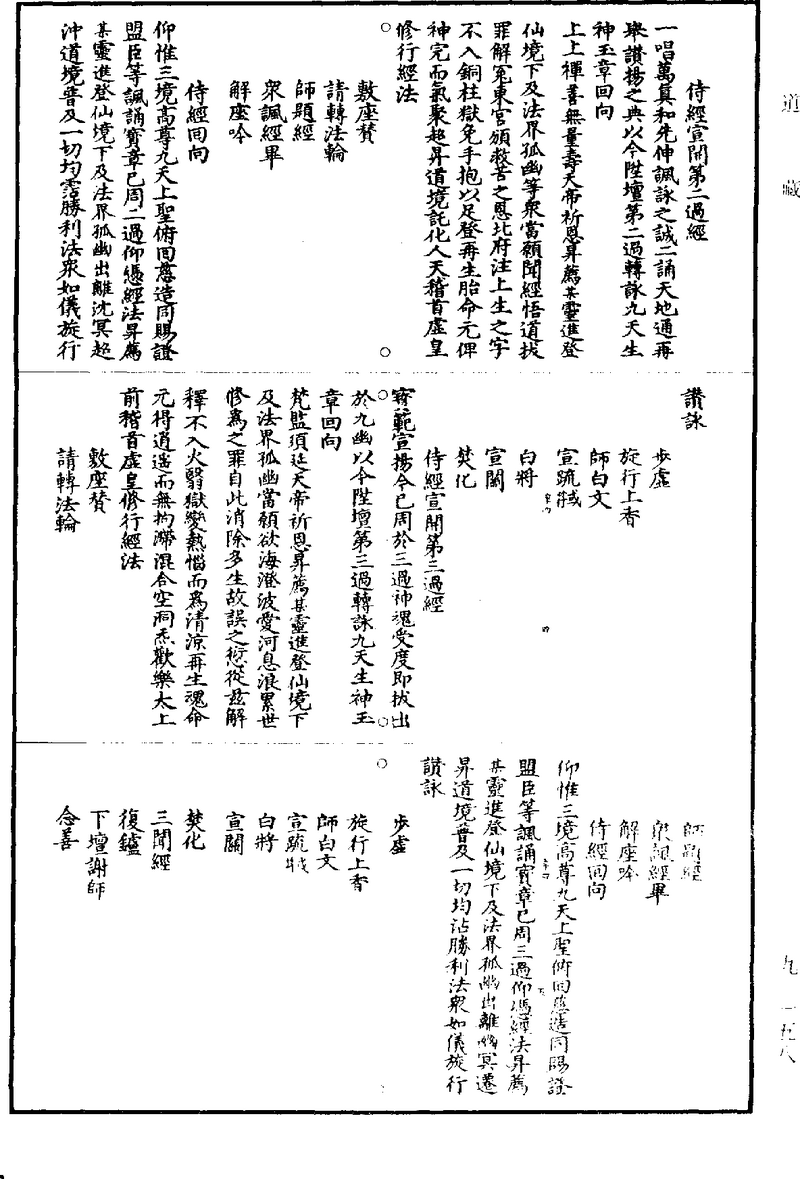 道藏
侍經宣開第二過經
一唱萬真和先伸諷詠之誠二誦天地通再
舉讚揚之典以今陞壇第二過轉詠九天生
神玉章回向
上上禪善無量壽天帝祈恩昇薦某靈進登
仙境下及法界孤幽等衆當願聞經悟道拔
罪解冤東宮頒救苦之恩北府注上生之字
不入銅柱獄免手抱以足登再生胎命元俾
神完而氣聚超昇道境託化人天稽首虛皇
修行經法
敷座贊
請轉法輪
師題經
衆諷經畢
解座吟
侍經回向
仰惟三境高尊九天上聖俯回慈造同賜證
盟臣等諷誦寶章已周二過仰憑經法昇薦
某靈進登仙境下及法界孤幽出離沈冥超
沖道境普及一切均霑勝利法衆如儀旋行
讚詠
步虛
旋行上香
師白文
宣疏
白將
宣關
焚化
侍經宣開第三過經
寶範宣揚今已周於三過神魂受度即拔出
於九幽以今陞壇第三過轉詠九天生神玉
章回向
梵監須延天帝祈恩昇薦某靈進登仙境下
及法界孤幽當願欲海澄波愛河息浪累世
修爲之罪自此消除多生故誤之愆從茲解
釋不入火翳獄變熱惱而爲清涼再生魂命
元得逍遥而無拘滯混合空洞炁歡樂太上
前稽首虛皇修行經法
敷座贊
請轉法輪
師題經
衆諷經畢
解座吟
侍經回向
仰惟三境高尊九天上聖俯回慈造同賜證
盟臣等諷誦寶章已周三過仰憑經法昇薦
某靈進登仙境下及法界孤幽出離幽冥遷
昇道境普及一切均沾勝利法衆如儀旋行
讚詠
步虛
旋行上香
師白文
宣疏
白將
宣關
焚化
三聞經
復鑪
下壇謝師
念善
九 一五八